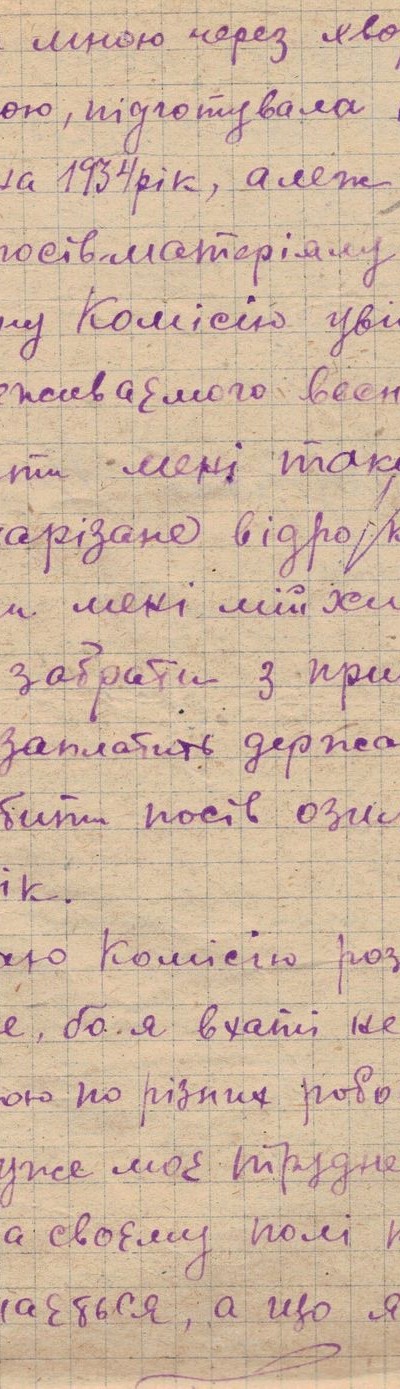 мною через хво
ою, підготувала
на 1934 рік, алеж
посівматеріялу
ну Комісію уві
еживаємого весн
ити мені таке
нарізане відро
и мені мій хи
забрати з при
заплатить держа
бити посів ози
ік.
аю Комісію роз
е, бо я вхаті не
ою по різних робо
уже моє трудне
а своєму полі н
нається, а що я